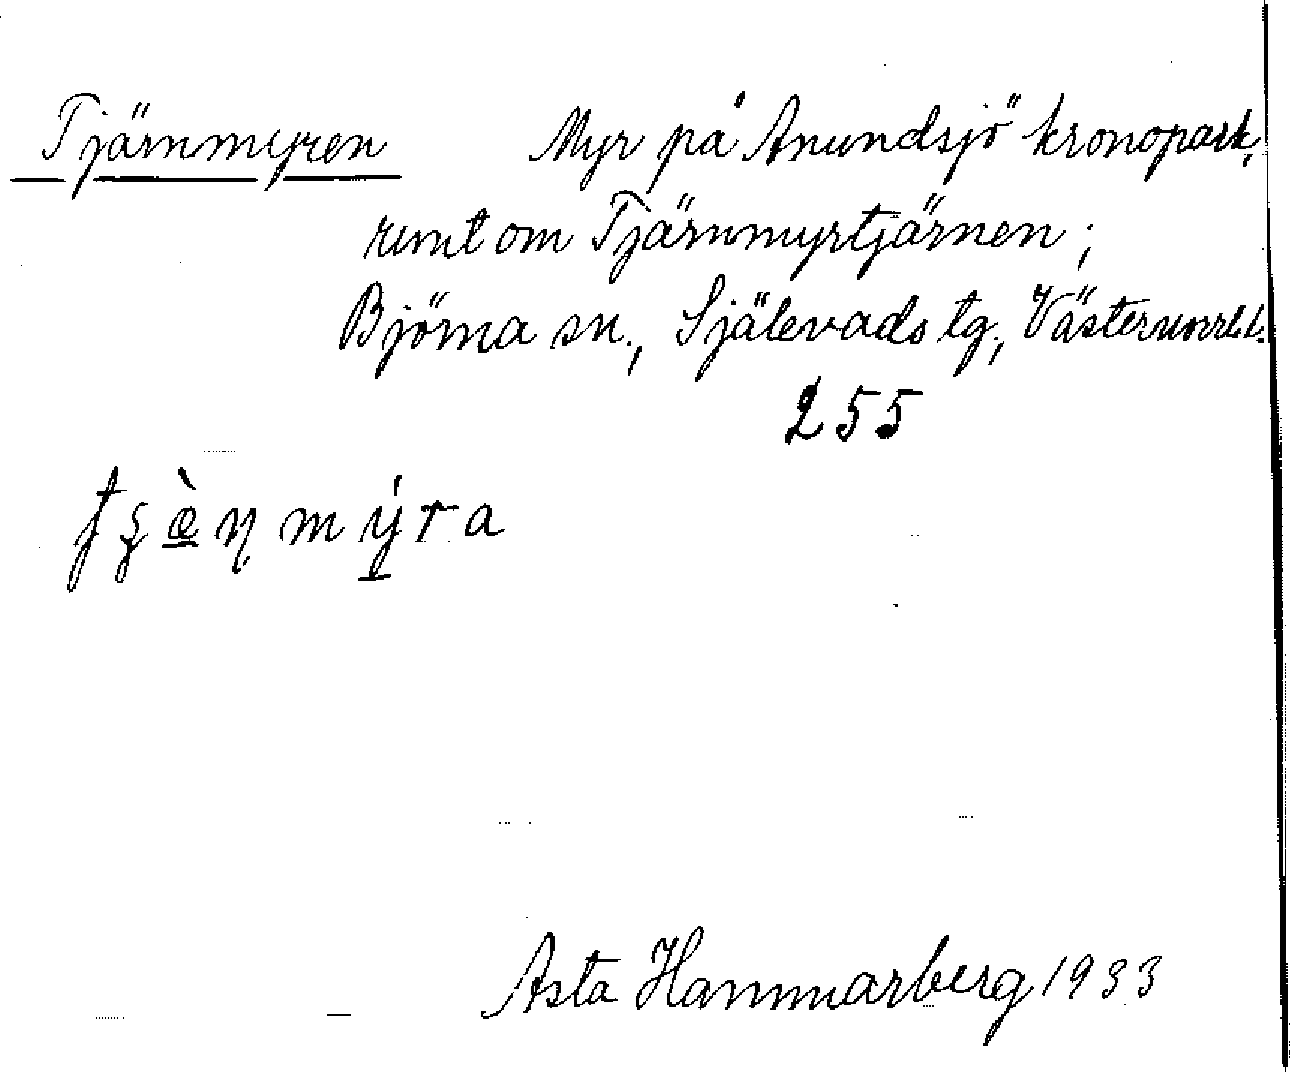 Tjärnmyren Myr på Anundsjö kronopark,
runt om Tjärnmyrtjärnen;
Björna sn., Själevads tg, Västernorrl. l.
255
Asta Hammarberg 1933